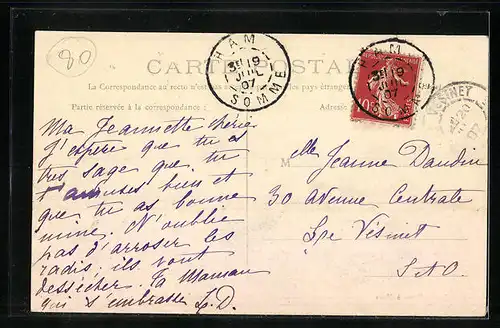 80
HAM
3E 19
JUIL
07
SOMME
HAM
3E 19
JUIL
07
SOMME
CARTE POSTALE
La Correspondance au recto n'est pas
pays étrangers
Partie réservée à la correspondance :
Adresse
VESINET
07
Ma Jeannette chérie
J'espère que tu es
très sage que tu
t'amuses bien et
que tu as bonne
mine. N'oublie
pas d'arroser les
radis; ils vont
dessécher. Ta Maman
qui t'embrasse L. D.
Mlle Jeanne Daudin
30 Avenue Centrale
Le Vésinet
S & O